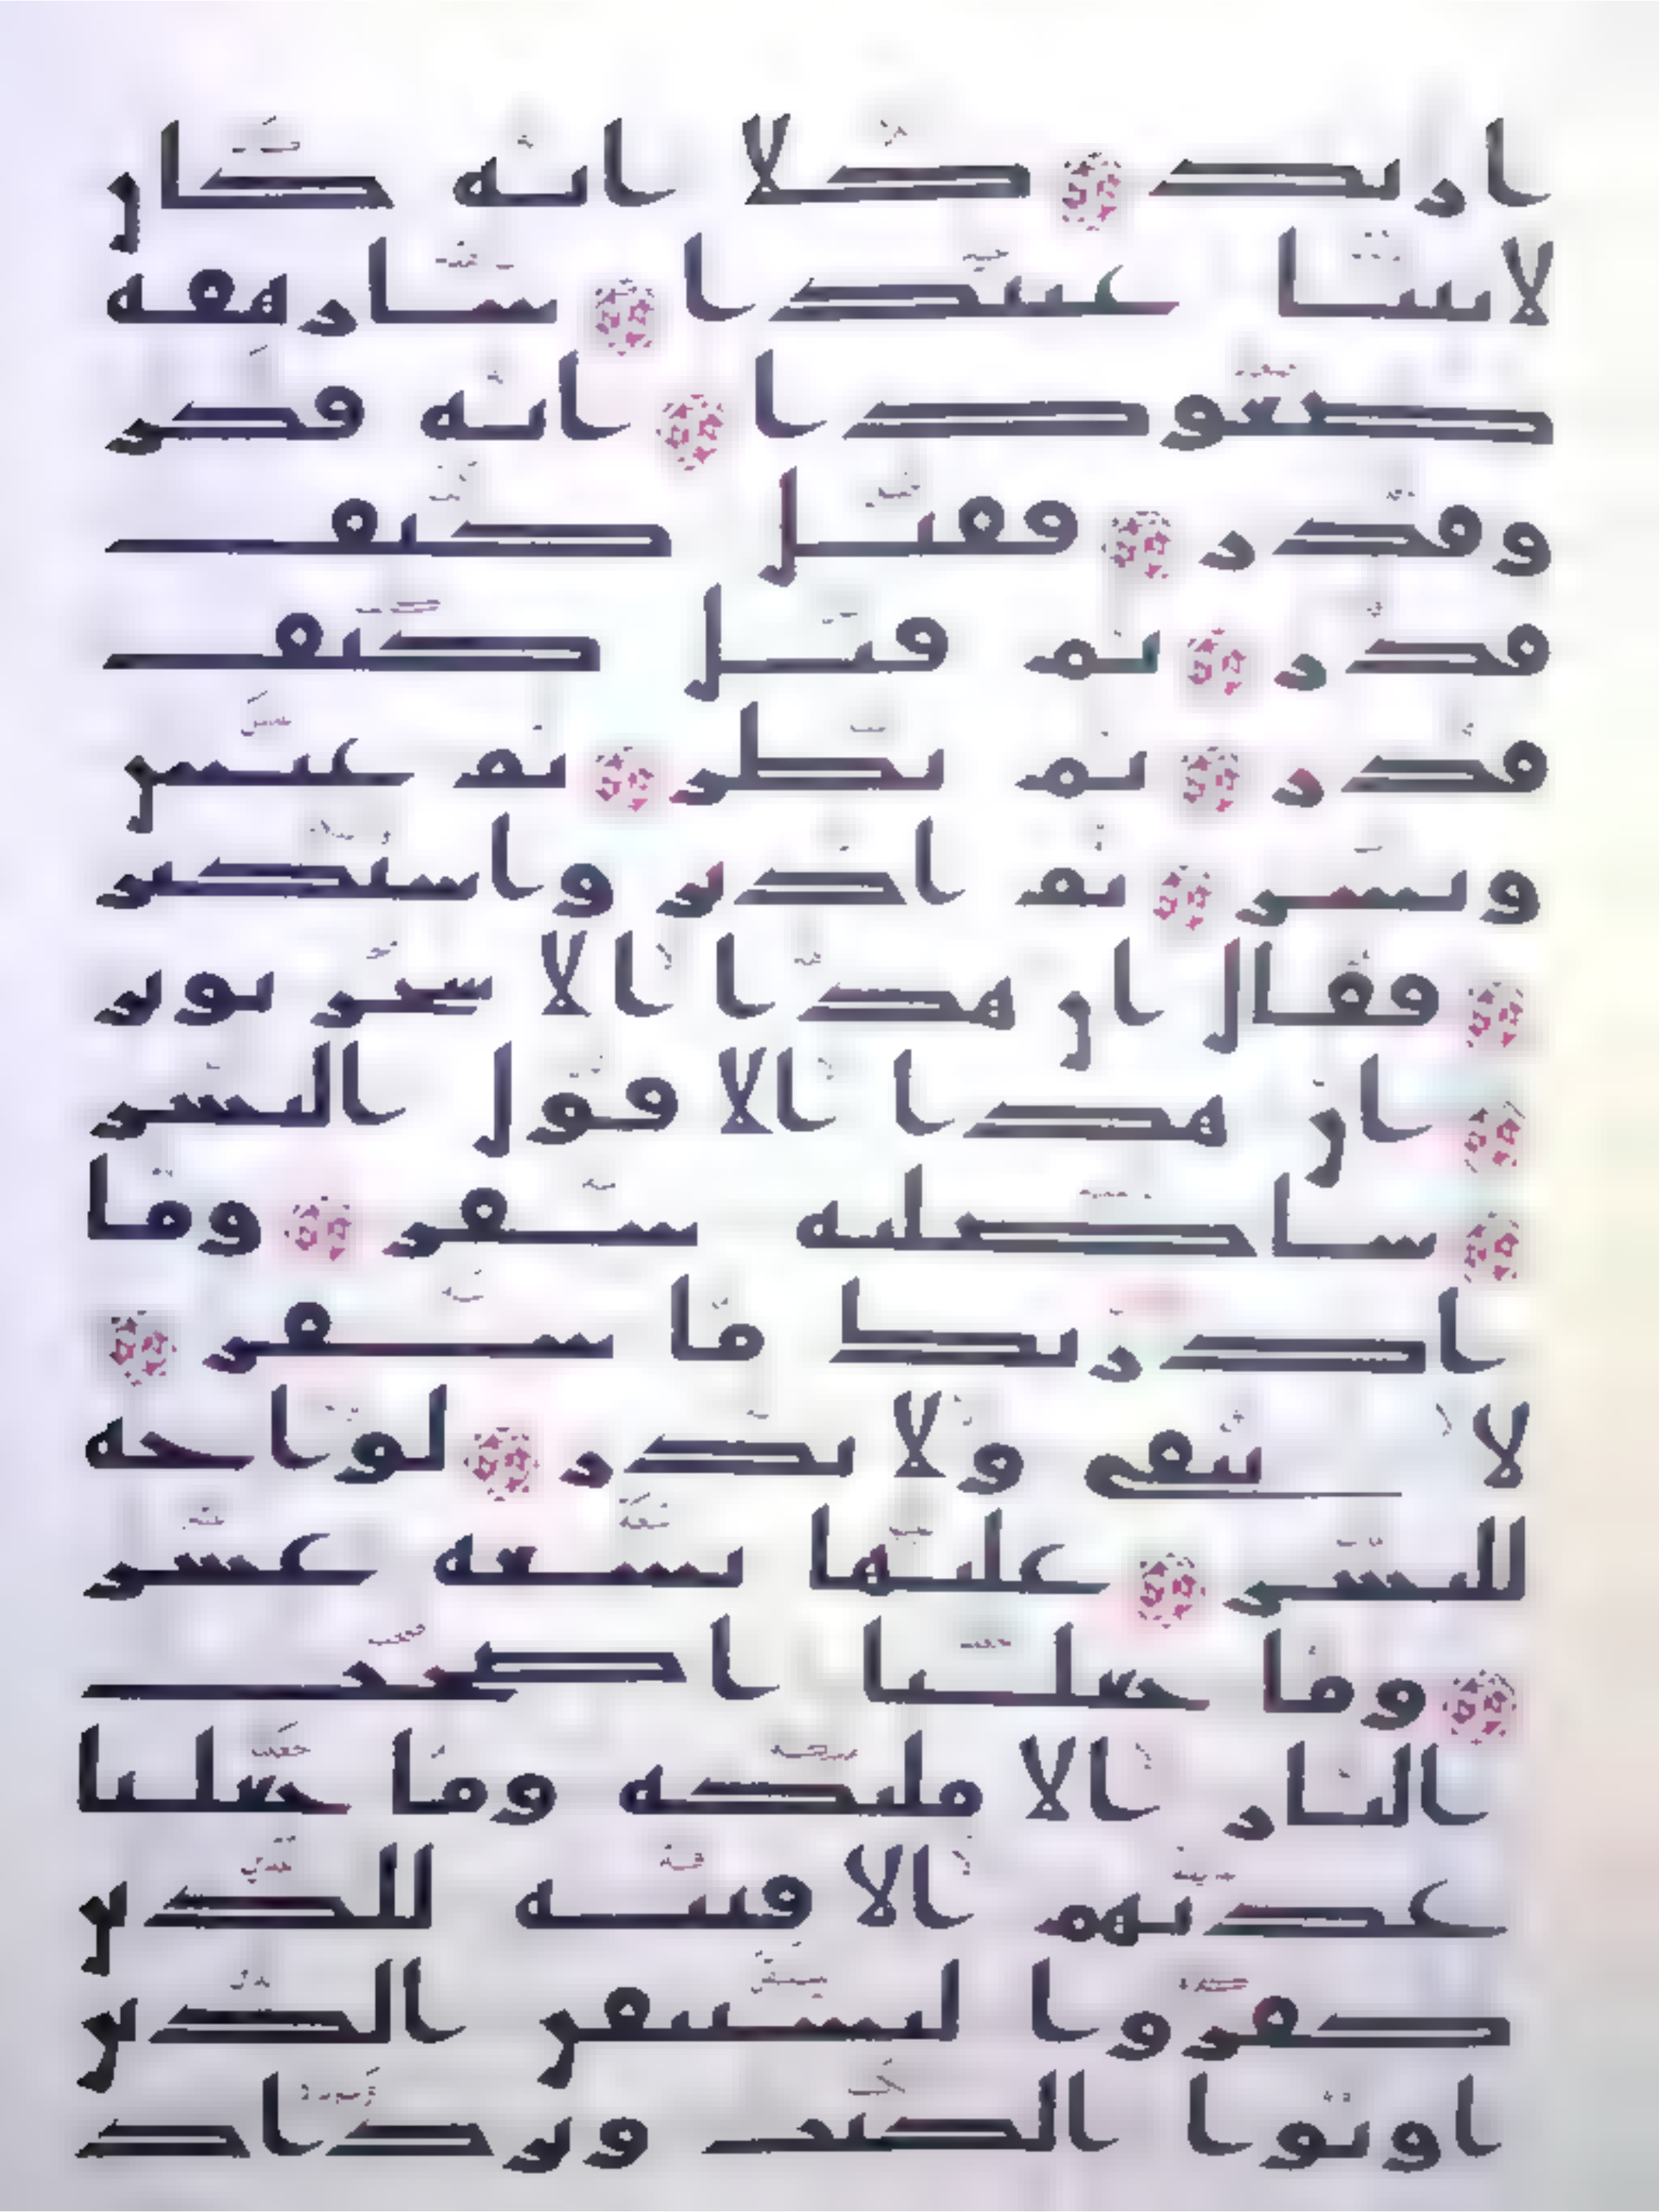 ازيد كلا انه كان
لايتنا عنيدا سارهقه
صعودا انه فكر
وقدر فقتل كيف
قدر ثم قتل كيف
قدر ثم نظر ثم عبس
وبسر ثم ادبر واستكبر
فقال ان هذا الا سحر يوثر
ان هذا الا قول البشر
ساصليه سقر وما
ادريك ما سقر
لا تبقي ولا تذر لواحه
للبشر عليها تسعه عشر
وما جعلنا اصحب
النار الا ملئكه وما جعلنا
عدتهم الا فتنه للذين
كفروا ليستيقن الذين
اوتوا الكتب ويزداد